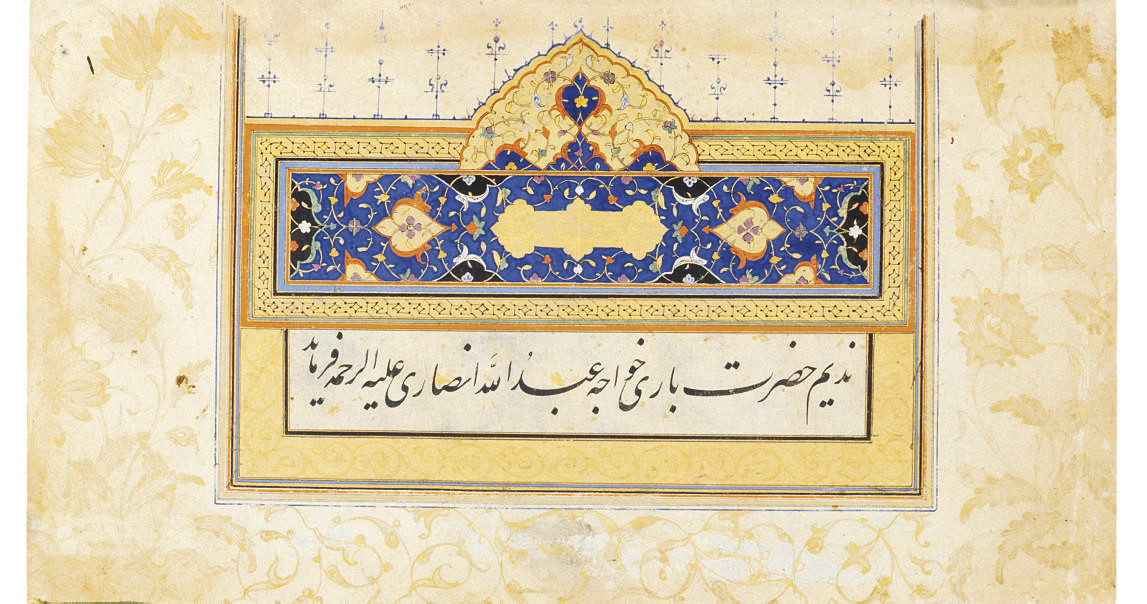 ندیم حضرت باری خواجه عبدالله انصاری علیه الرحمه فرماید